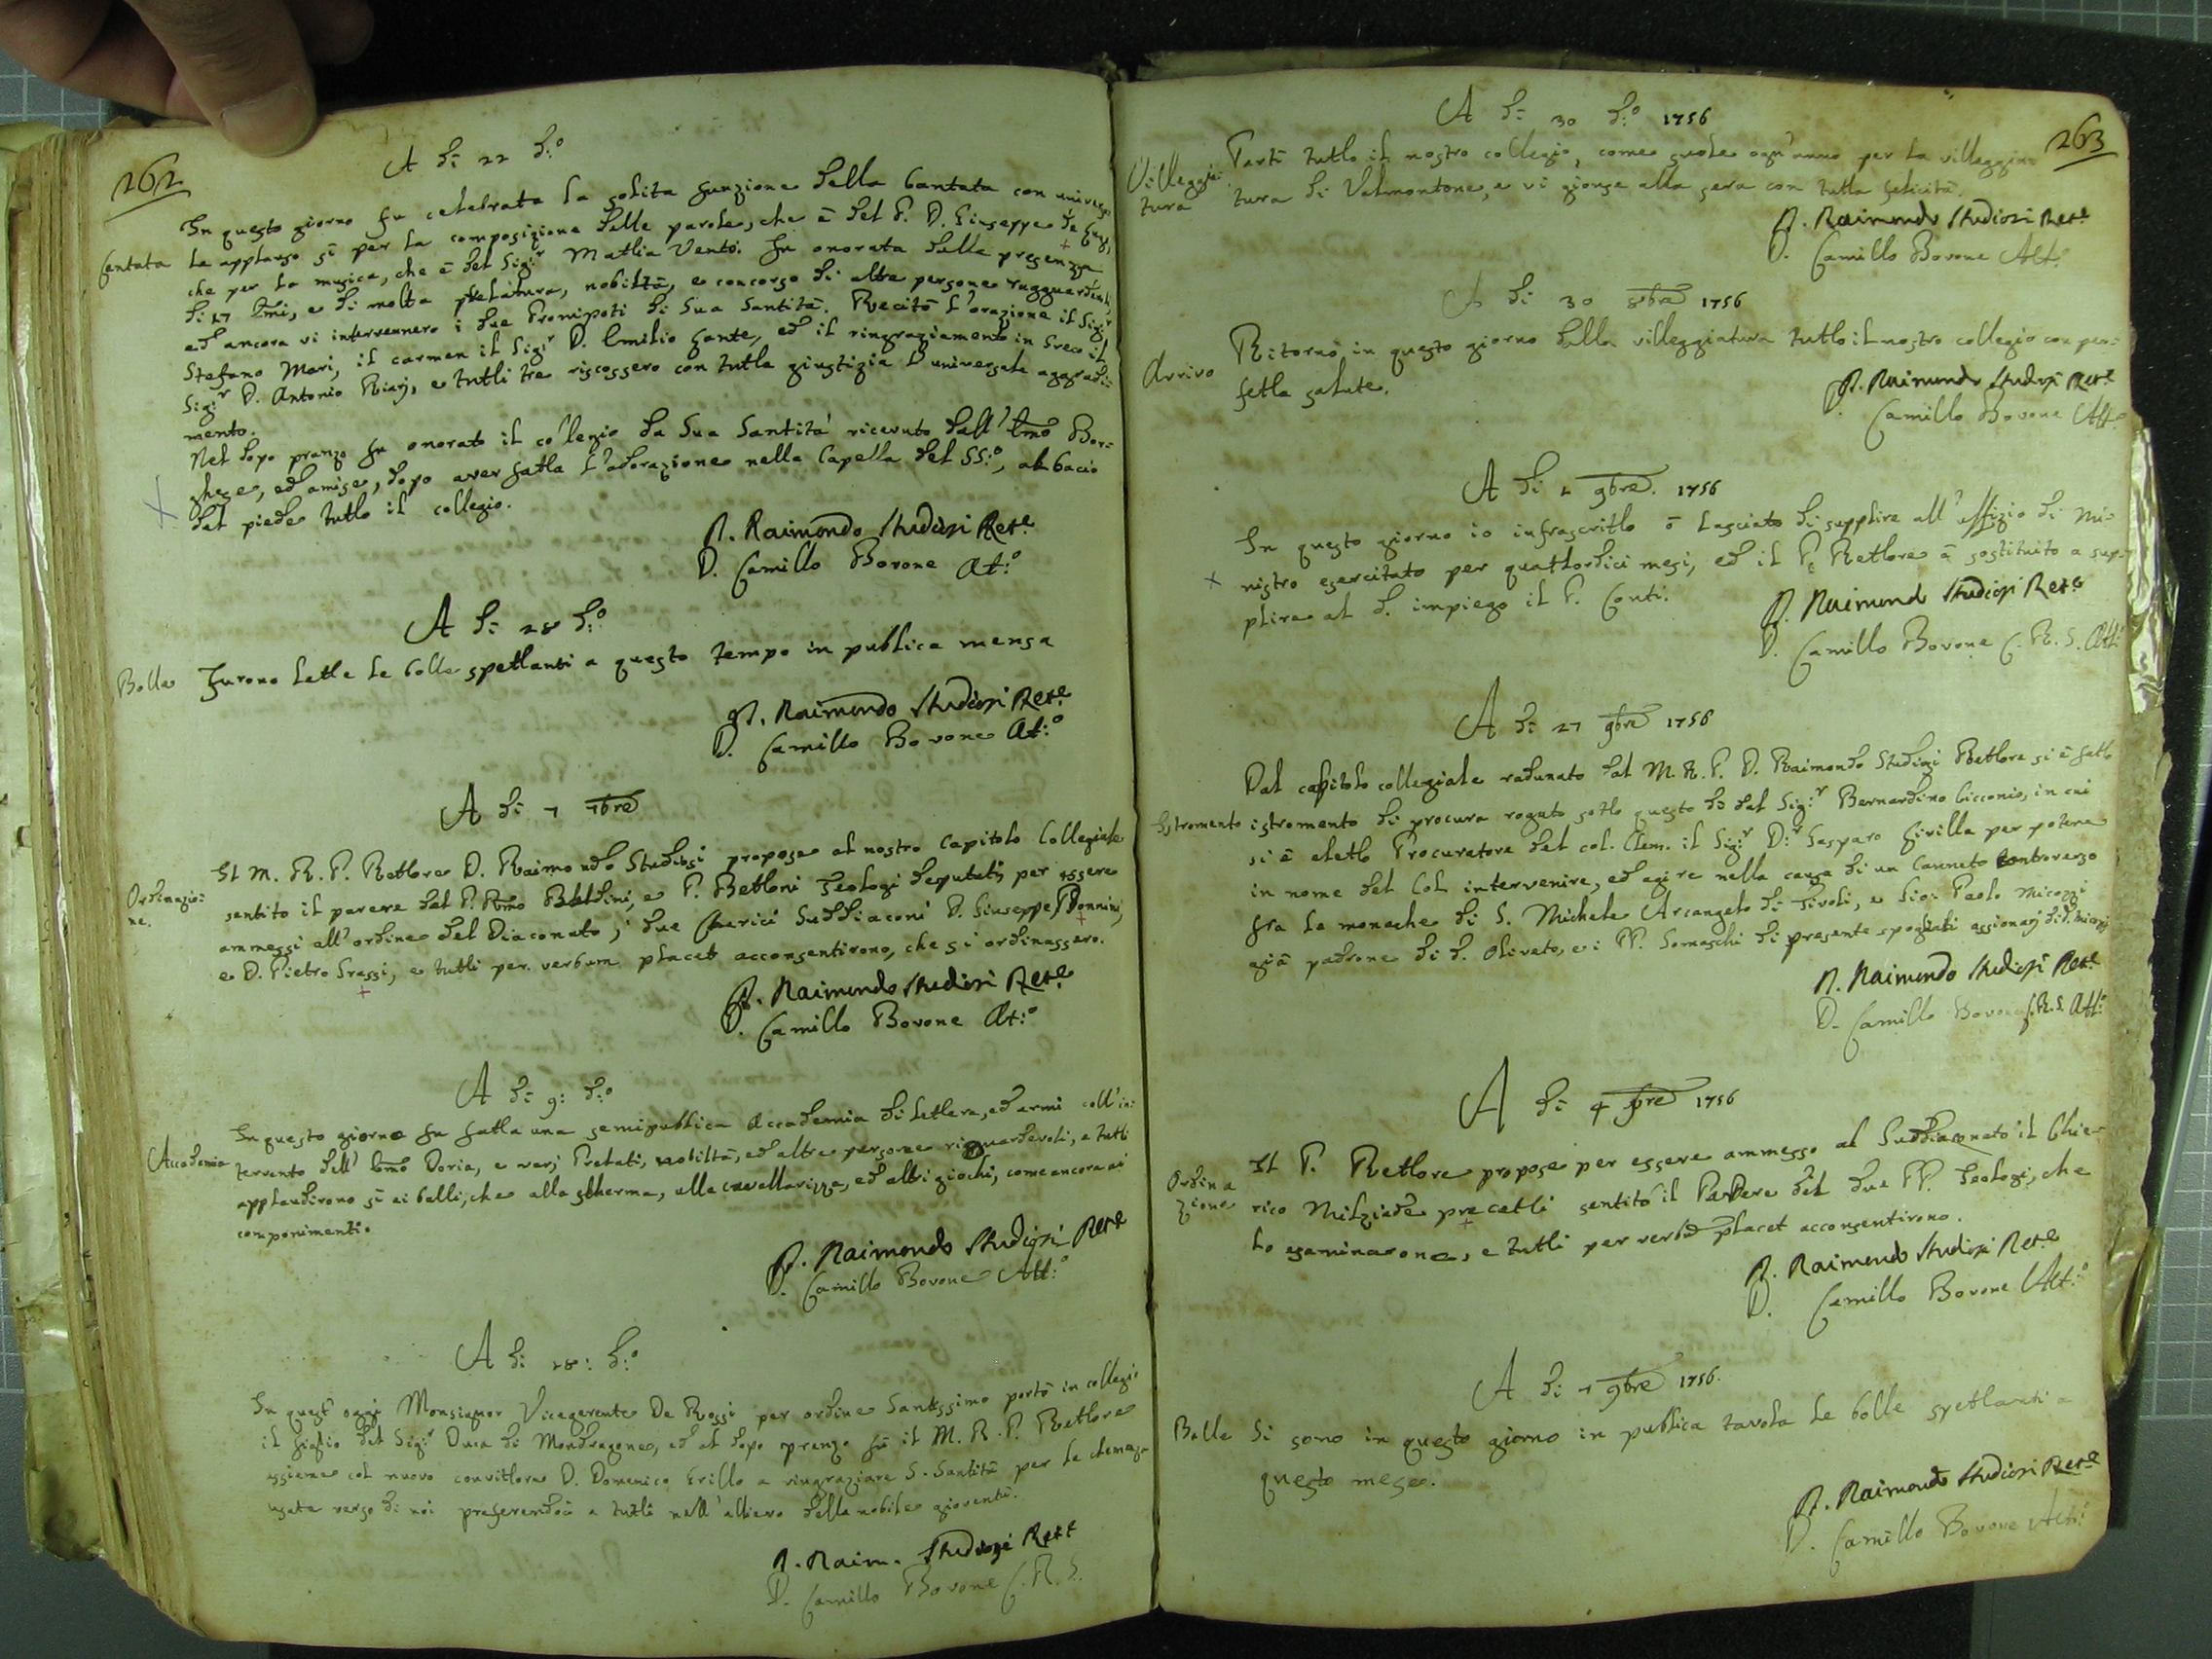 262
A dì 22 d:º
In questo giorno fu celebrata la solita funzione della Cantata con univers
Cantata le applauso sì per la composizione delle parole, che è del P. D. Giuseppe de
che per la musica, che è del Sig:r Mattia Vento. Fu onorata dalla presenza
di 17 Emi, e di molta prelatura, nobiltà, e concorso di altre persone ragguardevoli,
ed ancora vi intervennero i due Pronipoti di Sua Santità. Recitò l'orazione il Sig:r
Stefano Mari, il carmen il Sig:r D. Emilio Gante, ed il ringraziamento in Greco il
Sig:r D. Antonio Riarj, e tutti tre riscossero con tutta giustizia l'universale aggradi:
mento.
Nel dopo pranzo fu onorato il collegio da Sua Santità ricevuto dall' Emo Bor:
ghese, ed amise, dopo aver fatta l'adorazione nella Capella del SS:º, al bacio
del piede tutto il collegio.
D. Raimondo Studiosi Rett.e
D. Camillo Bovone At:º
A dì 28 d:º
Bolle Furono lette le bolle spettanti a questo tempo in publica mensa
D. Raimondo Studiosi Rett.e
D. Camillo Bovone At:º
A dì 7 7bre
Il M. R. P. Rettore D. Raimondo Studiosi propose al nostro Capitolo Collegiale
Ordinazio:
ne.
sentito il parere del P. Rmo Baldini, e P. Bettoni Teologi deputati per essere
ammessi all'ordine del Diaconato i due Chierici Suddiaconi D. Giuseppe Donnini,
e D. Pietro Grassi, e tutti per verbum placet acconsentirono, che si ordinassero.
D. Raimondo Studiosi Rett.e
D. Camillo Bovone At:º
A dì 9: d:º
In questo giorno fu fatta una semipublica Accademia di lettere, ed armi coll'in:
Accademia tervento dell' Emo Doria, e varj Prelati, nobiltà, ed altre persone riguardevoli, e tutti
applaudirono sì ai balli, che alla scherma, alla cavallarizza, ed altri giochi, come ancora ai
componimenti.
D. Raimondo Studiosi Rett.e
D. Camillo Bovone Att:º
A dì 28: d:º
In quest' oggi Monsignor Vicegerente De Rossi per ordine Santissimo portò in collegio
il figlio del Sig:r Duca di Mondragone, ed al dopo pranzo fu il M. R. P. Rettore
assieme col nuovo convittore D. Domenico Grillo a ringraziare S. Santità per la clemenza
usata verso di noi preferendoci a tutti nell'allievo della nobile gioventù.
D. Raim. Studiosi Rett.e
D. Camillo Bovone C. R. S.
263
A dì 30 d:º 1756
Villeggia
tura
Partì tutto il nostro collegio, come suole ogn'anno per la villeggia
tura di Valmontone, e vi gionse alla sera con tutta felicità.
D. Raimondo Studiosi Rett.e
D. Camillo Bovone Att:º
A dì 30 8bre 1756
Arrivo Ritornò in questo giorno dalla villeggiatura tutto il nostro collegio con per:
fetta salute.
D. Raimondo Studiosi Rett.e
Camillo Bovone Att:º
A dì 9bre. 1756
In questo giorno io infrascritto ò lasciato di supplire all'uffizio di Mi:
nistro esercitato per quattordici mesi, ed il P. Rettore à sostituito a sup:
plire al d. impiego il P. Conti.
D. Raimondo Studiosi Rett.e
D. Camillo Bovone C. R. S. Att:º
A dì 27 9bre 1756
Dal capitolo collegiale radunato dal M. R. P. D. Raimondo Studiosi Rettore si è fatto
Istromento istromento di procura rogato sotto questo dì dal Sig:r Bernardino Cicconio, in cui
si è eletto Procuratore del col. Clem. il Sig:r D:r Gasparo Girilla per potere
in nome del Col. intervenire, ed agire nella causa di un Canneto controverso
fra le monache di S. Michele Arcangelo di Tivoli, e Sig: Paolo Micozzi
già padrone di d. Oliveto, e i PP. Somaschi di presente spogliati
D. Raimondo Studiosi Rett.e
D. Camillo Bovone C.R.S. Att:º
A dì 4 1756
Ordina
zione
Il P. Rettore propose per essere ammesso al Suddiaconato il Chie
rico Milziade precetti sentito il Parere del due PP. Teologi, che
lo esaminarono, e tutti per verbũ placet acconsentirono.
D. Raimondo Studiosi Rett.e
D. Camillo Bovone Att:º
A dì 9bre 1756.
Bolle Si sono in questo giorno in publica tavola le bolle spettanti a
questo mese.
D. Raimondo Studiosi Rett.e
D. Camillo Bovone Att:º